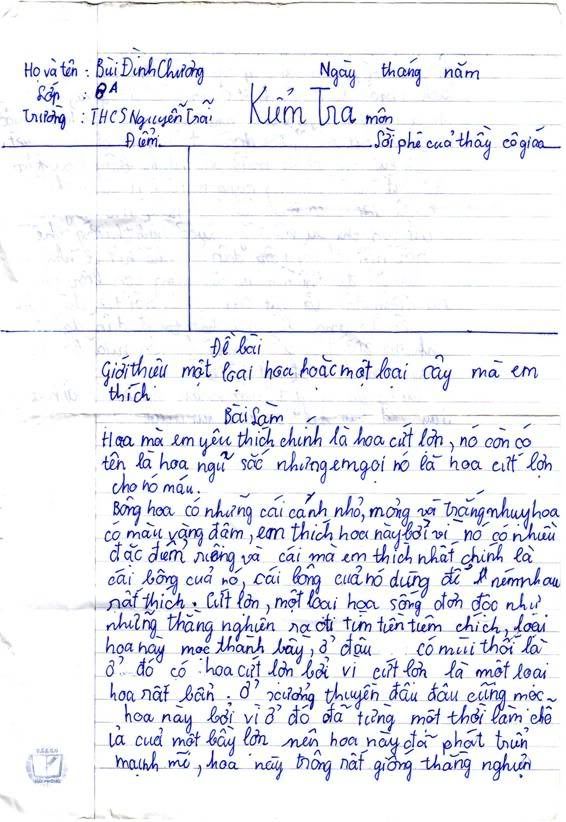 Họ và tên : Bùi Đình Chương
Ngày tháng năm
Lớp : 8A
Trường : THCS Nguyễn Trãi
Kiểm Tra môn
Điểm
Lời phê cuả thầy cô giáo
Đề bài
Giới thiêu một loại hoa hoặc một loai cây mà em
thích
Bài Làm
Hoa mà em yêu thích chính là hoa cứt lơn, nó còn có
tên là hoa ngũ sắc nhưng em gọi nó là hoa cứt lợn
cho nó máu.
Bông hoa có những cái cánh nhỏ, mỏng và trắng nhuy hoa
có màu vàng đâm, em thích hoa này bởi vì nó có nhiều
đặc điểm riêng và cái mà em thích nhất chính là
cái bông cuả nó, cái bông cuả nó dùng để ném nhau
rất thích. Cứt lơn, một loại hoa sống đơn độc như
những thằng nghiên ra đi tìm tiền tiêm chích, loại
hoa này moc thành bầy, ở đâu có mùi thối là
ở đó có hoa cứt lơn bởi vì cứt lơn là một loại
hoa rất bẩn. Ở xưởng thuyền đâu đâu cũng mọc
hoa này bởi vì ở đó đã từng một thời làm chỗ
ỉa cuả một bầy lơn nên hoa này đã phát triển
mạnh mẽ, hoa này trông rất giống thằng nghiện